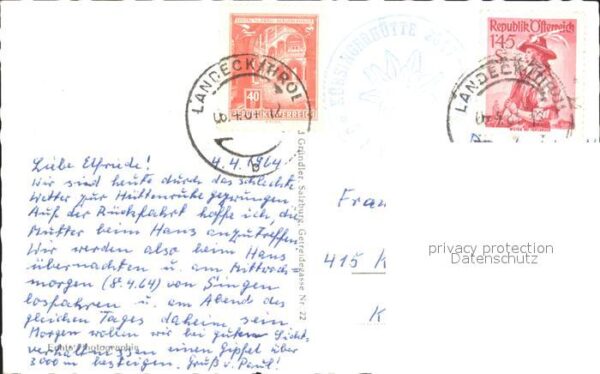 LANDECK/TIROL
40
REPUBLIK ÖSTERREICH
Republik Österreich
145
S
LANDECK/TIROL
Liebe Elfriede! 4.4.1964
Wir sind heute durch das schlechte
Wetter zur Hüttenruhe gezwungen
Auf der Rückfahrt hoffe ich, die
Mutter beim Hans anzutreffen
Wir werden also beim Hans
übernachten u. am Mittwoch
morgen (8.4.64) von Singen
losfahren u. am Abend des
gleichen Tages daheim sein.
Morgen wollen wir bei guten Sicht-
verhältnissen einen Gipfel über
3000 m besteigen. Gruß v. Paul!
Echte Photographie
Gründler, Salzburg, Getreidegasse Nr. 22
Frau
415 K
K
privacy protection
Datenschutz